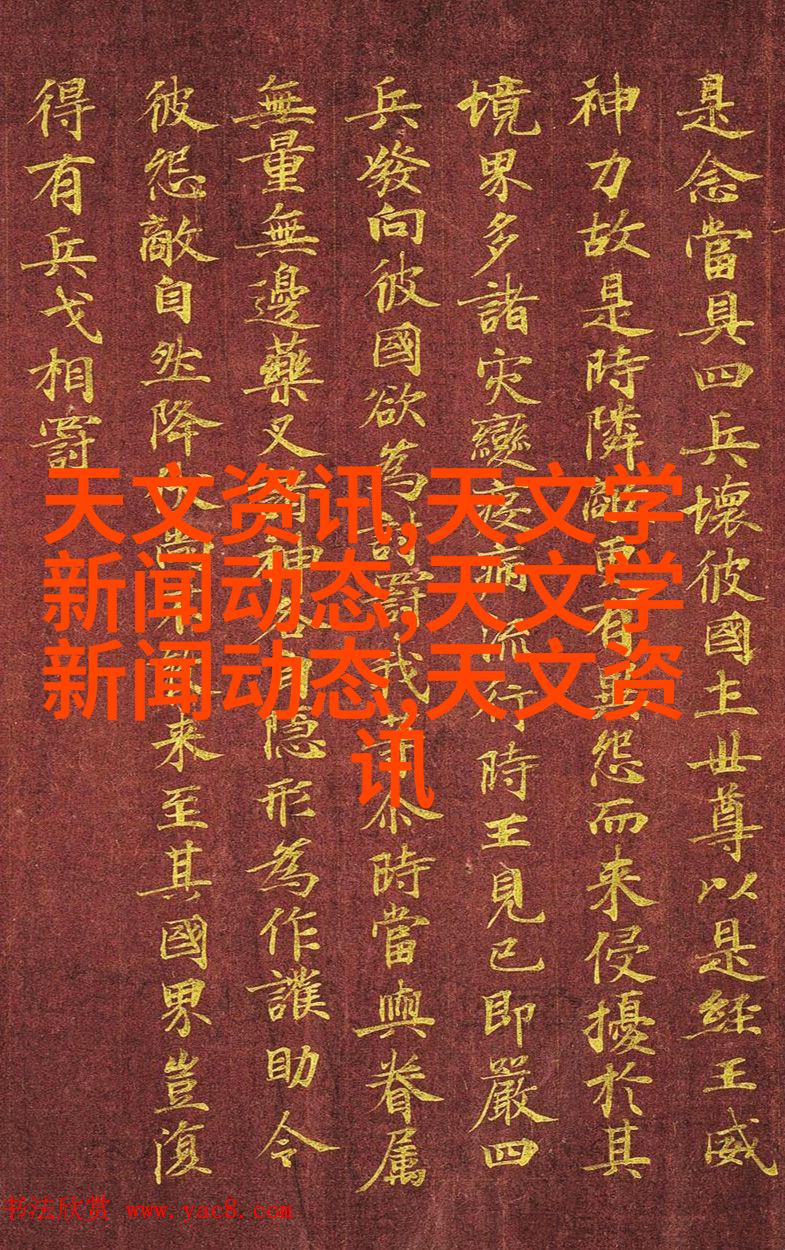 是念當具四兵壞彼國土世尊以是經王威
神力故是時隣敵更有異怨而来侵擾於其
境界多諸灾變疫病流行時王見已即嚴四
兵發向彼國欲為討罸我等尒時當與眷属
無量無邊藥叉諸神各自隐形為作護助令
彼怨敵自然降伏尚不敢来至其國界豈復
得有兵戈相罸
天文资讯,天文学
新闻动态,天文学
新闻动态,天文资
讯
书法欣赏 www.yac8.com